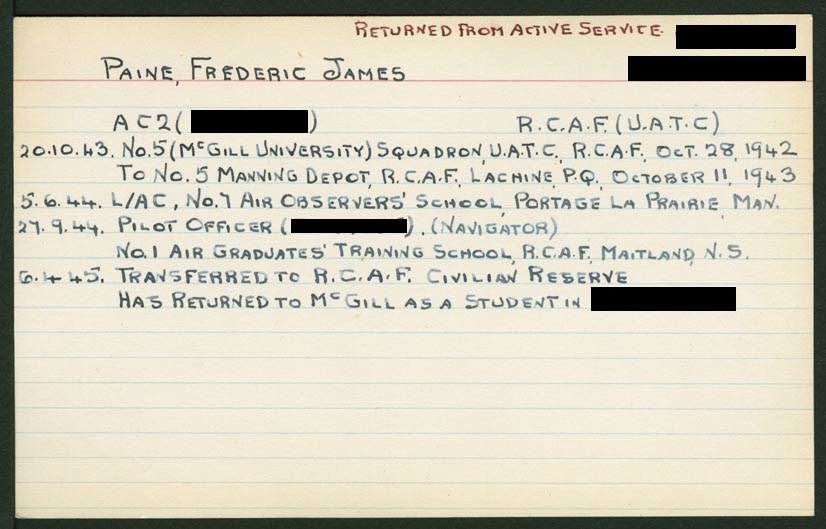 RETURNED FROM ACTIVE SERVICE.
PAINE, FREDERIC JAMES
AC2 ( ) R.C.A.F. (U.A.T.C)
20.10.43. No.5 (McGILL UNIVERSITY) SQUADRON, U.A.T.C., R.C.A.F., OCT. 28, 1942
TO No. 5 MANNING DEPOT, R.C.A.F., LACHINE, P.Q., OCTOBER 11, 1943
5.6.44. L/AC, No.7 AIR OBSERVERS' SCHOOL, PORTAGE LA PRAIRIE, MAN.
27.9.44. PILOT OFFICER ( ), (NAVIGATOR)
No.1 AIR GRADUATES' TRAINING SCHOOL, R.C.A.F., MAITLAND, N.S.
6.4.45. TRANSFERRED TO R.C.A.F. CIVILIAN RESERVE
HAS RETURNED TO McGILL AS A STUDENT IN